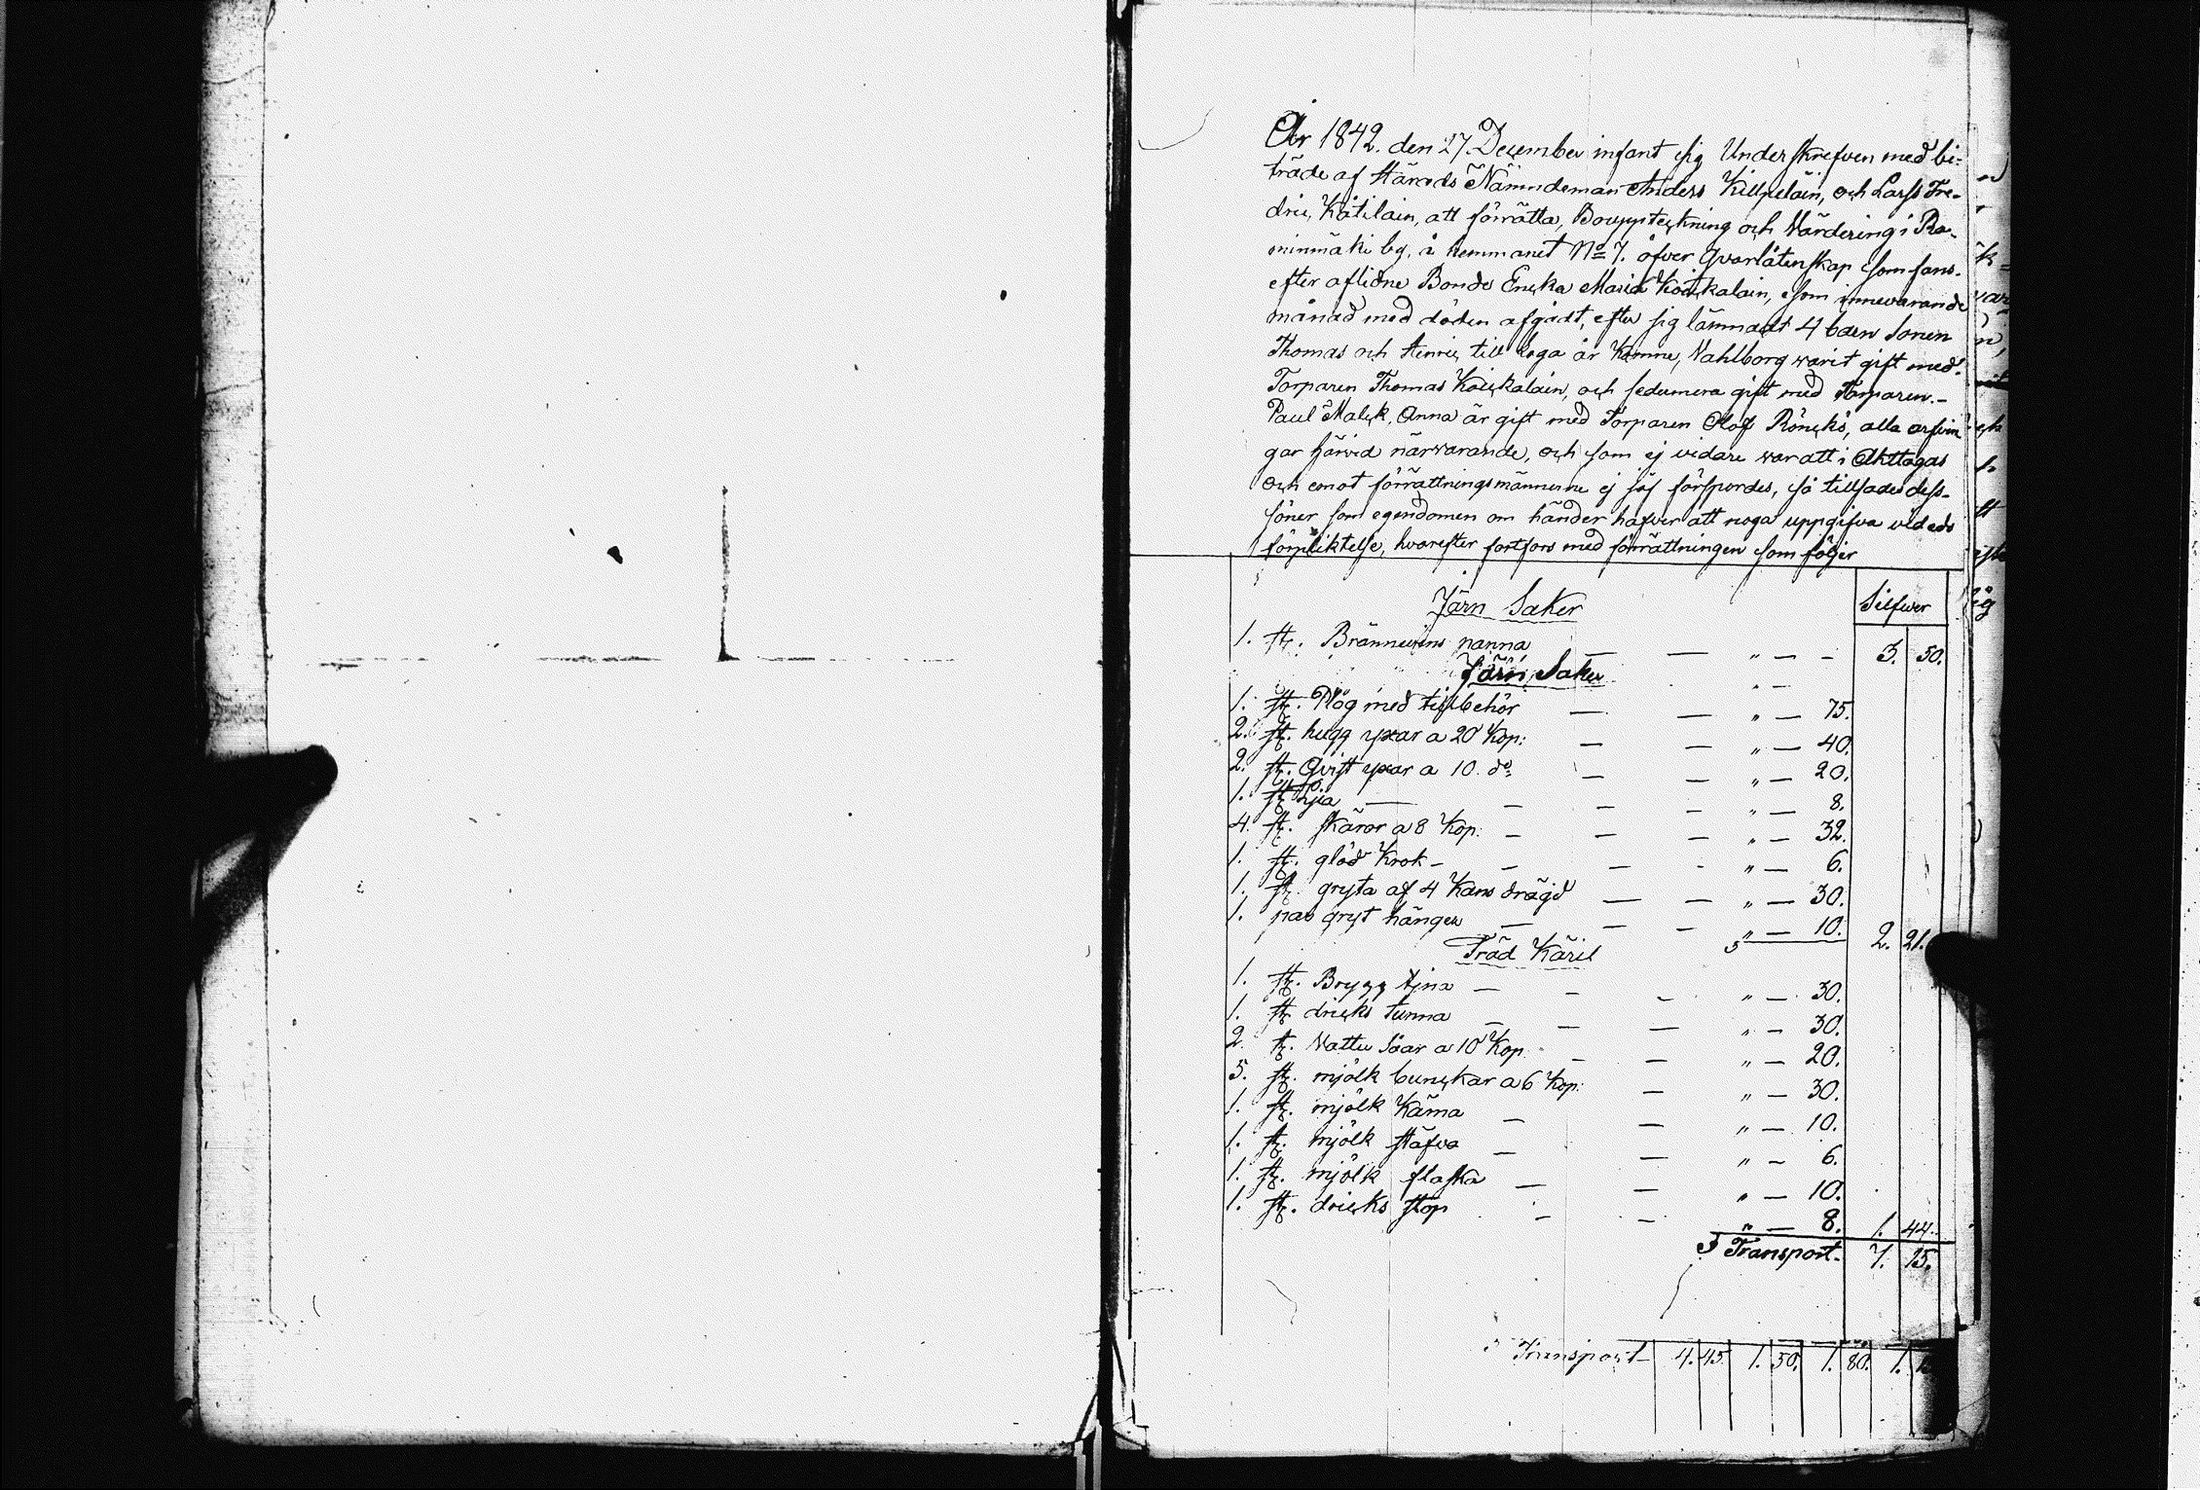 År 1842. den 27 December infant sig Underskrefven med bi-
träde af Härads Nämndeman Anders Kilpeläin, och Larss Fre-
dric, Kåtilain, att förrätta, Bouppteckning och Värdering i Ra-
minmäki by, å hemmanet No 7. öfver Qvarlåtenskap som fans.
efter aflidne Bonde Encka Maria Koickalain, som innevarande
månad med döden afgådt, efter sig lämnadt 4 barn Sonen
Thomas och Henric till Laga år Komne, Vahlborg warit gift med
Torparen Thomas Koickalain, och sedermera gift med Torparen.-
Paul Malck, Anna är gift med Torparen Olof Rönckö, alla arfvin-
gar härvid närvarande, och som ej vidare war att i Akttagas
och emot förrättningsmännerne ej jäf försporдes, så tillsades dess-
söner som egendomen om händer hafver att noga uppgifva vid eds
förpliktelse, hvarefter fortfors med förrättningen som följer
Silfwer
Järn Saker
1. st. Brännewins panna — — " — - 3. 50.
Järn Saker
1. st. Plög med tillbehör — — " — 75.
2. st. hugg yxar a 20 Kop: — — " — 40.
2. st. Qvist yxar a 10. do — — " — 20.
1. st Lia — — — — " — 8.
4. st. skäror a 8 Kop: — — — " — 32.
1. st. glöd Krok — — — - " — 6.
1. st. gryta af 4 Kans drägd — — " — 30.
1. par gryt hänger — — — " — 10. 2. 21.
Träd Käril
1. st. Brygg tjna — - - " — 30.
1. st dricks tunna — — — " — 30.
2. st. Vattu Såar a 10 Kop. - — " — 20.
5. st. mjölk bunckar a 6 Kop: — " — 30.
1. st. mjölk Kärna — — " — 10.
1. st. mjölk stäfva — — " — 6.
1. st. mjölk flaska — — " — 10.
1. st. dricks stop - — " — 8. 1. 44.
Transport- 7. 15.
Transport- 4. 45. 1. 50. 1. 80. 1.